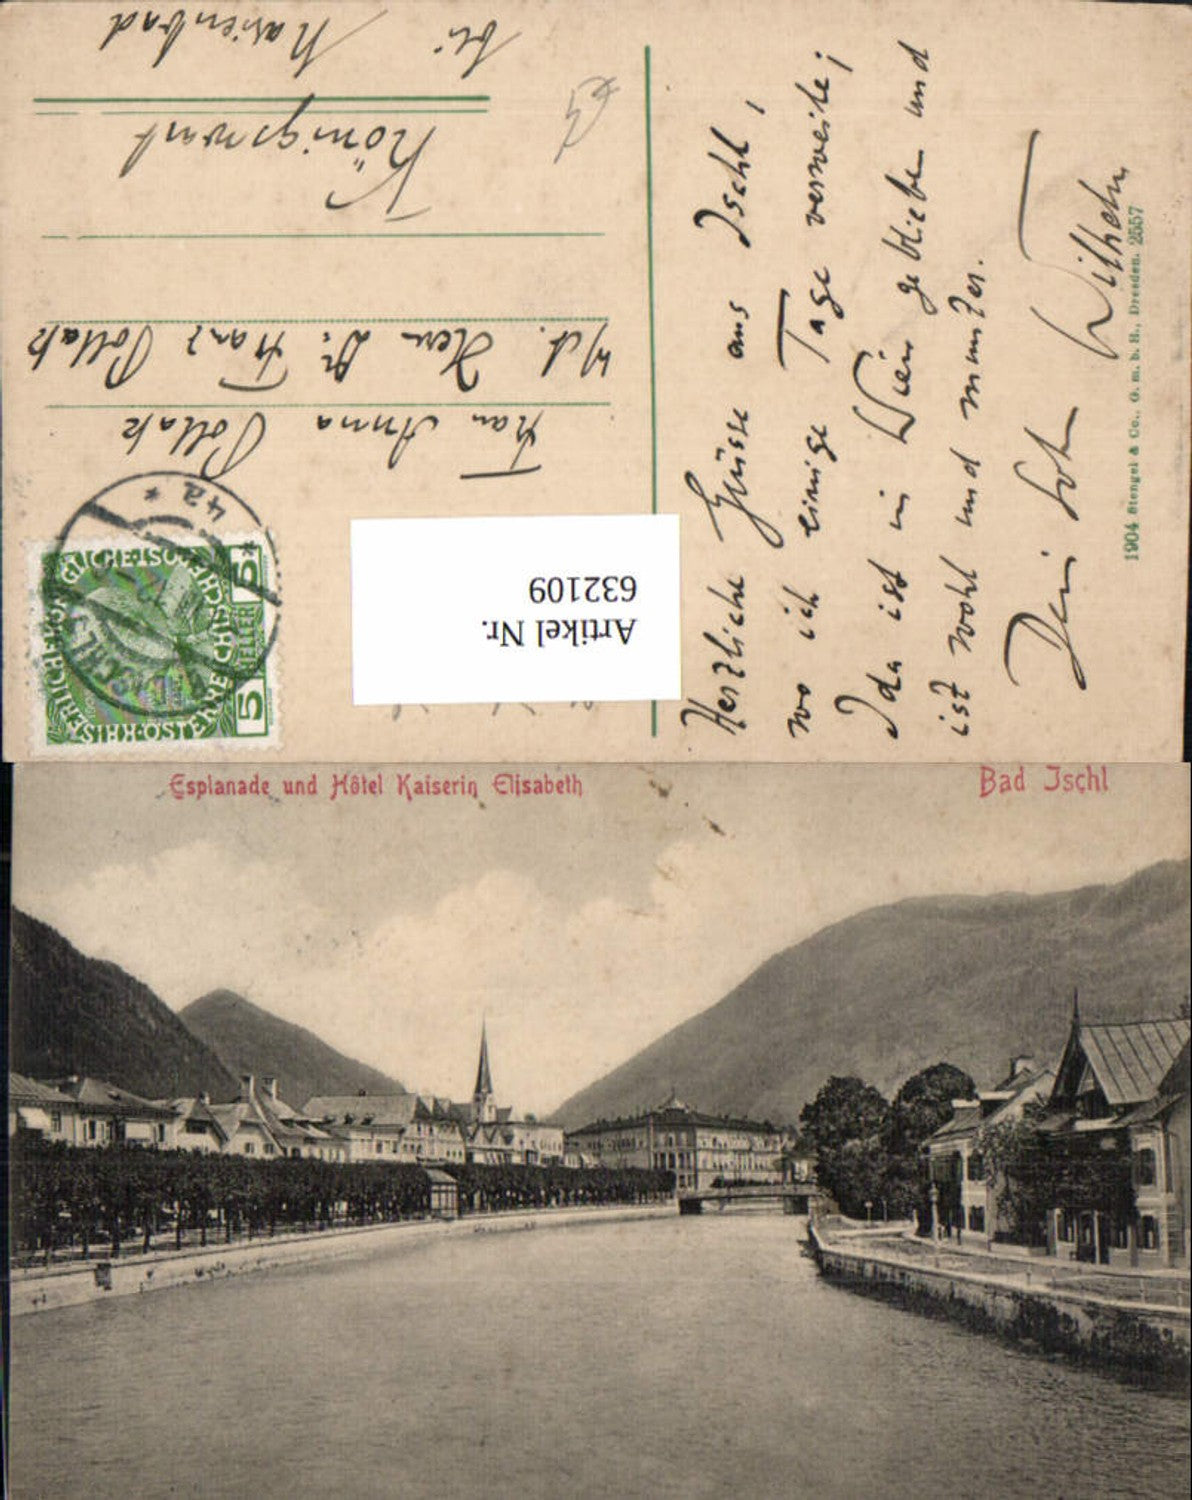 Frau Anna Pollak
Herrn Dr. Franz Pollak
Königswart
bei Marienbad
Artikel Nr.
632109
KAISERLICHE KÖNIGLICHE ÖSTERREICHISCHE
5 HELLER 5
ISCHL
* 4a *
Herzliche Grüsse aus Ischl,
wo ich einige Tage verweile;
Ida ist in Wien geblieben und
ist wohl und munter.
Dein Sohn Wilhelm
1904 Stengel & Co., G. m. b. H., Dresden. 2557
Esplanade und Hôtel Kaiserin Elisabeth
Bad Ischl